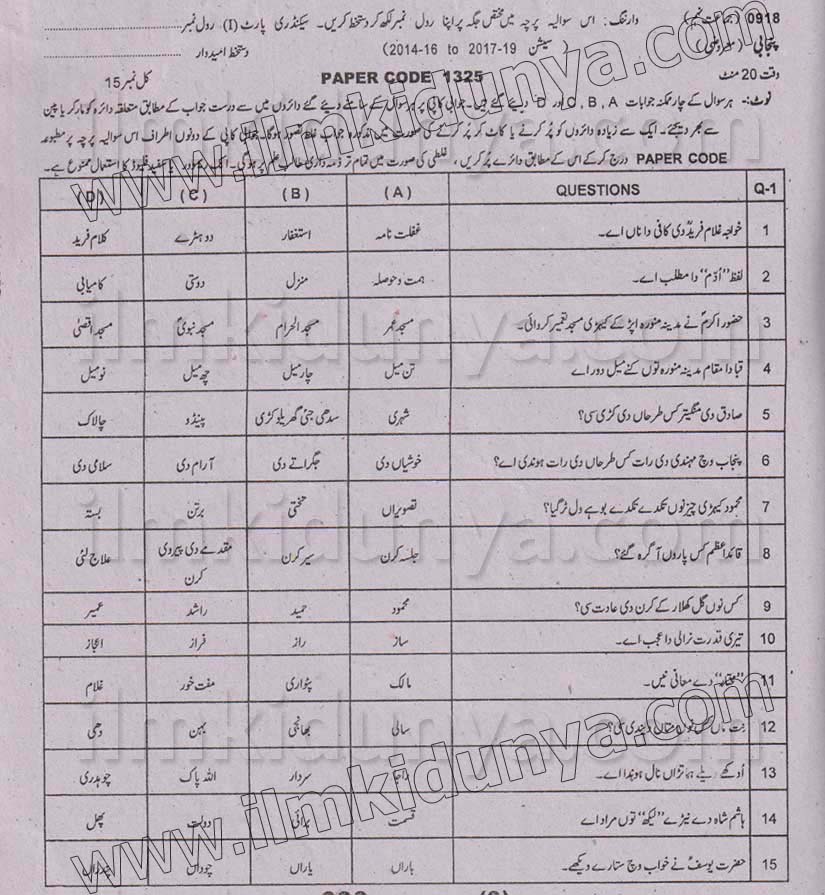 0918 (جماعت نہم) وارننگ: اس سوالیہ پرچہ میں مختص جگہ پر اپنا رول نمبر لکھ کر دستخط کریں۔ سیکنڈری پارٹ (I) رول نمبر
پنجابی (2014-16 to 2017-19 سیشن) دستخط امیدوار
وقت 20 منٹ PAPER CODE 1325 کل نمبر 15
نوٹ:- ہر سوال کے چار ممکنہ جوابات A, B, C اور D دیئے گئے ہیں۔ جوابی کاپی پر ہر سوال کے سامنے دیئے گئے دائروں میں سے درست جواب کے مطابق متعلقہ دائرہ کو مارکر یا پین
سے بھر دیجئے۔ ایک سے زیادہ دائروں کو پُر کرنے یا کاٹ کر پُر کرنے کی صورت میں مذکورہ جواب غلط تصور ہوگا۔ جوابی کاپی کے دونوں اطراف اس سوالیہ پرچہ پر مطبوعہ
PAPER CODE درج کر کے اس کے مطابق دائرے پُر کریں، غلطی کی صورت میں تمام تر ذمہ داری طالب علم پر ہو گی۔ فلیوڈ کا استعمال ممنوع ہے۔
Q-1 QUESTIONS (A) (B) (C) (D)
1 خواجہ غلام فریدؒ دی کافی دا ناں اے۔ غفلت نامہ استغفار دوہڑے کلام فرید
2 لفظ "اُدّم" دا مطلب اے۔ ہمت و حوصلہ منزل دوستی کامیابی
3 حضور اکرمؐ نے مدینہ منورہ اپڑ کے کیہڑی مسجد تعمیر کروائی۔ مسجد عمر مسجد الحرام مسجد نبویؐ مسجد اقصیٰ
4 قبا دا مقام مدینہ منورہ توں کنے میل دور اے تن میل چار میل چھ میل نو میل
5 صادق دی منگیتر کس طرحاں دی کڑی سی؟ شہری سدھی جئی گھریلو کڑی پینڈو چالاک
6 پنجاب وچ مہندی دی رات کس طرحاں دی رات ہوندی اے؟ خوشیاں دی جگراتے دی آرام دی سلامی دی
7 محمود کیہڑی چیز نوں تکدے تکدے بوہے ول ٹر گیا؟ تصویراں تختی برتن بستہ
8 قائداعظم کس پاروں آگرہ گئے؟ جلسہ کرن سیر کرن مقدمے دی پیروی کرن علاج لئی
9 کس نوں گل کھلار کے کرن دی عادت سی؟ محمود حمید راشد عمیر
10 تیری قدرت نرالی دا عجب اے۔ ساز راز فراز اعجاز
11 دے معانی نیں۔ مالک پٹواری مفت خور غلام
12 سالی بھانجی بہن دھی
13 اُدکھے ویلے ہتراں نال ہوندا اے۔ راجا سردار اللہ پاک چوہدری
14 ہاشم شاہ دے نیڑے "لیکھ" توں مراد اے قسمت دولت پھل
15 حضرت یوسفؑ نے خواب وچ ستارے دیکھے۔ باراں یاراں چوداں
www.ilmkidunya.com
ilmkidunya.com
ilmkidunya.com
ilmkidunya.com
ilmkidunya.com
www.ilmkidunya.com